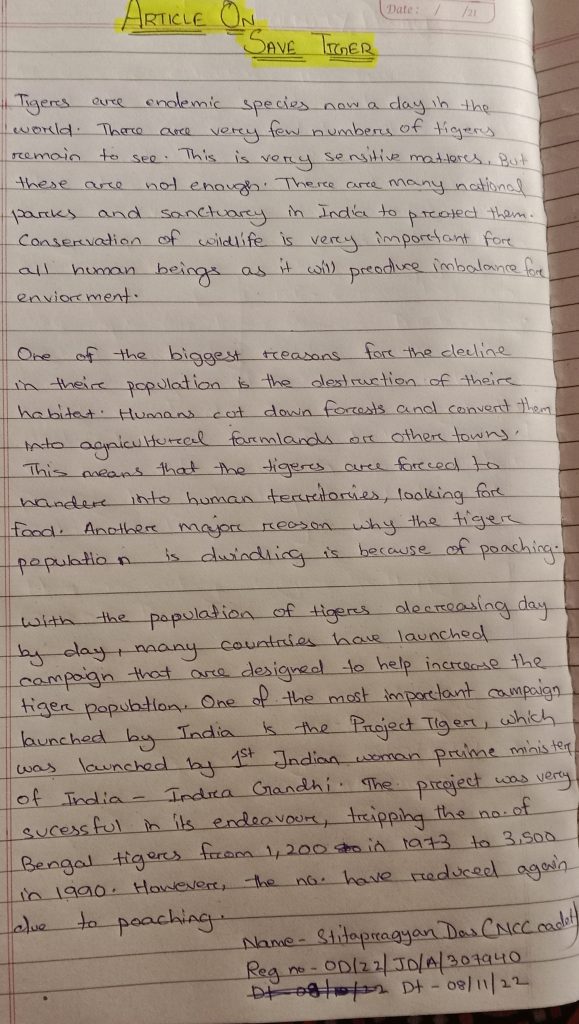 Date: / /21
ARTICLE ON
SAVE TIGER
Tigers are endemic species now a day in the
world. There are very few numbers of tigers
remain to see. This is very sensitive matters, But
these are not enough. There are many national
parks and sanctuary in India to protect them.
Conservation of wildlife is very important for
all human beings as it will preodure imbalance for
enviorement.
One of the biggest reasons for the decline
in their population is the destruction of their
habitat. Humans cut down forests and convert them
into agricultural farmlands or other towns.
This means that the tigers are forced to
wander into human territories, looking for
food. Another major reason why the tiger
population is dwindling is because of poaching.
With the population of tigers decreasing day
by day, many countries have launched
campaign that are designed to help increase the
tiger population. One of the most important campaign
launched by India is the Project Tiger, which
was launched by 1st Indian woman prime minister
of India - Indira Gandhi. The project was very
sucessful in its endeavour, tripping the no. of
Bengal tigers from 1,200 in 1973 to 3,500
in 1990. However, the no. have reduced again
due to poaching.
Name - Stitapragyan Das (NCC cadet)
Reg no - OD/22/JD/A/307940
Dt - 08/11/22